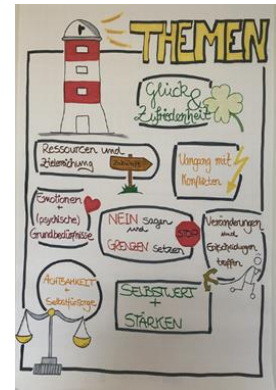 THEMEN
Glück
&
Zufriedenheit
Ressourcen und
Zielerreichung
Zukunft
Umgang mit
Konflikten
Emotionen
+
(psychische)
Grundbedürfnisse
NEIN sagen
und
GRENZEN setzen
STOP
Veränderungen
und
Entscheidungen
treffen
ACHTSAMKEIT +
Selbstfürsorge
SELBSTWERT
+
STÄRKEN